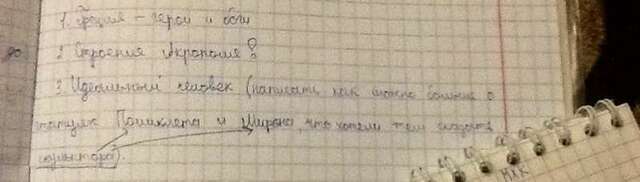 1. Греция - герои и боги
2. Строения Акрополя?
3. Идеальный человек (написать как можно больше о
статуях Поликлета и Мирона, что хотели тем сказать
скульптора).
МХК